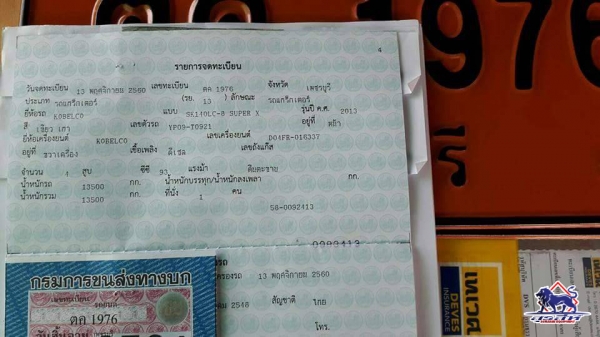 ตฉ 1976
4
รายการจดทะเบียน
วันจดทะเบียน 13 พฤศจิกายน 2560 เลขทะเบียน ตค 1976 จังหวัด เพชรบุรี
ประเภท รถแทร็กเตอร์ (รย. 13 ) ลักษณะ รถแทร็กเตอร์
ยี่ห้อรถ KOBELCO แบบ SK140LC-8 SUPER X รุ่นปี ค.ศ. 2013
สี เขียว เทา เลขตัวรถ YP09-T0921 อยู่ที่
ยี่ห้อเครื่องยนต์ KOBELCO เลขเครื่องยนต์ D04FR-016337
อยู่ที่ ขวาเครื่อง เชื้อเพลิง ดีเซล เลขถังแก๊ส
จำนวน 4 สูบ ซีซี 93 แรงม้า
น้ำหนักรถ 13500 กก. น้ำหนักบรรทุก/น้ำหนักลงเพลา กก.
น้ำหนักรวม 13500 กก. ที่นั่ง 1 คน
58-0092413
0092413
รถ
ครองรถ 13 พฤศจิกายน 2560
2548 สัญชาติ ไทย
โทร.
กรมการขนส่งทางบก
เลขทะเบียน
รถยนต์
ตค 1976
วันสิ้นอายุ
รี
เทเวศ
DEVES
INSURANCE